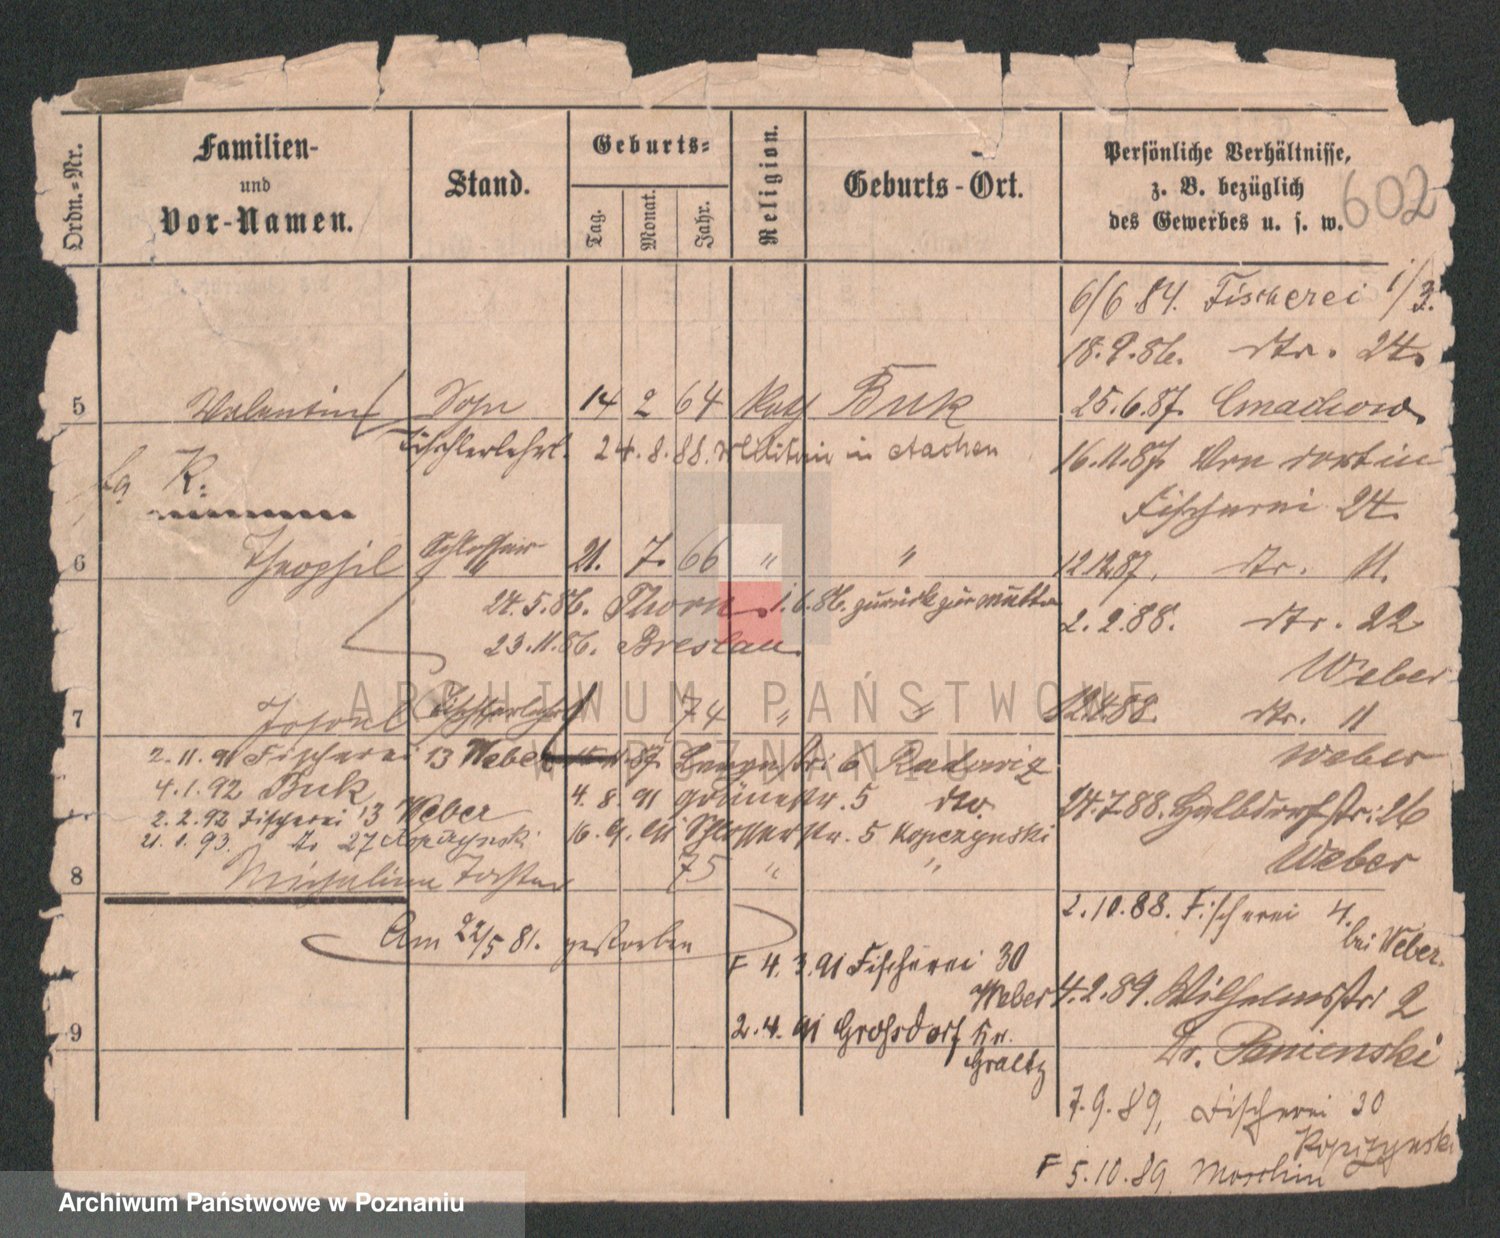 Ordn.-Nr.
Familien-
und
Vor-Namen.
Stand.
Geburts-
Tag.
Monat.
Jahr.
Religion.
Geburts-Ort.
Persönliche Verhältnisse,
z. B. bezüglich
des Gewerbes u. s. w.
602
6/6 84. Fischerei 1/3.
18.9.86. dto. 24.
5 Valentin Sohn 14 2 64 Kath Buk
25.6.87. Cmachowo
Tischlerlehrl. 24.8.88. Militair in Aachen
16.11.87. Von dort in
Fischerei 24.
K.
6 Theophil Schlosser 21. 7. 66 " "
12.12.87. dto. 11.
24.5.86. Thorn. 1.6.86. zurück zur Mutter
2.2.88. dto. 22
23.11.86. Breslau.
Weber
7 Tischlerlehrl 74 " "
dto. 11
Weber
2.11.91 Fischerei 13 Weber
87. Langestr. 6 Radowicz
4.1.92 Buk
4.8.91 Grünestr. 5 dto.
24.7.88. Halbdorfstr. 26
Weber
2.2.92 Fischerei 13 Weber
21.1.93. do 27 Kopczynski
16.9.91 Schlosserstr. 5 Kopczynski
8 Michalina Tochter 75 " "
2.10.88. Fischerei 4.
bei Weber.
Am 22/5 81. gestorben
F 4.3.91 Fischerei 30
Weber
4.2.89. Wilhelmsstr. 2
Dr. Panienski
2.4.91 Grossdorf Kr.
Graetz
9
7.9.89, Fischerei 30
Kopczynski
F 5.10.89 Moschin
ARCHIWUM PAŃSTWOWE
W POZNANIU
Archiwum Państwowe w Poznaniu